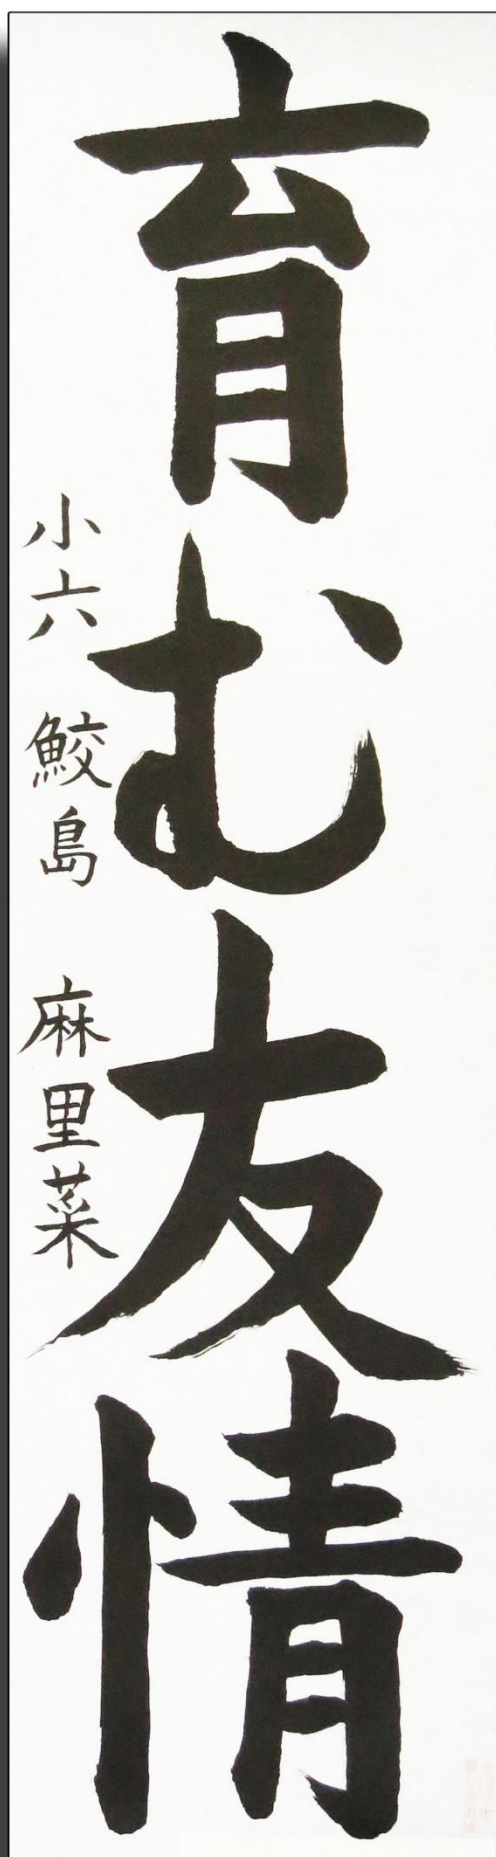 育む友情
小六 鮫島 麻里菜